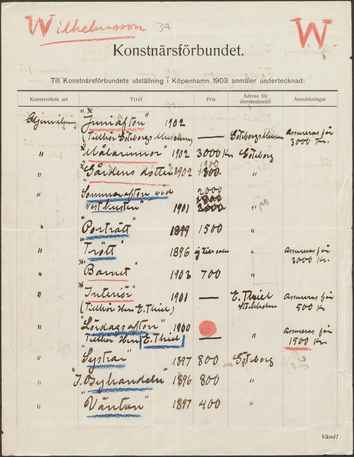 Wilhelmson 34 W
Konstnärsförbundet.
Till Konstnärsförbundets utställning i Köpenhamn 1903 anmäler undertecknad:
Konstverkets art Titel Pris Adress för återsändandet Anmärkningar
Oljemålning "Juniafton" 1902
(Tillhör Göteborgs Museum) — Göteborgs Museum Assureras för 3000 Kr.
" "Målarinnor" 1902 3000 Kr. Göteborg
" "Gårdens dotter" 1902 1800 "
" Sommarafton vid
Vestkusten" 1901 2000 "
" "Porträtt" 1899 1500 "
" "Trött" 1896 " Assureras för 3000 Kr.
" "Barnet" 1903 700 "
" "Interiör" 1901 — E. Thiel Stockholm Assureras för 500 Kr.
(Tillhör Herr E. Thiel)
" "Lördagsafton" 1900 " Assureras för 1500 Kr.
Tillhör Herr E. Thiel
" "Systrar" 1897 800 Göteborg
" "I Byhandeln" 1896 800 "
" "Väntan" 1897 400 "
Vänd!